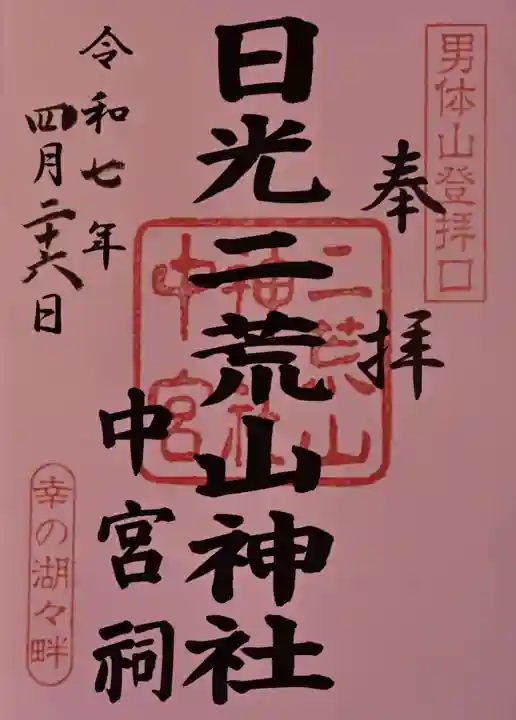 男体山登拝口
奉拝
日光二荒山神社
中宮祠
二荒山
神社
中宮
令和七年
四月二十六日
幸の湖々畔